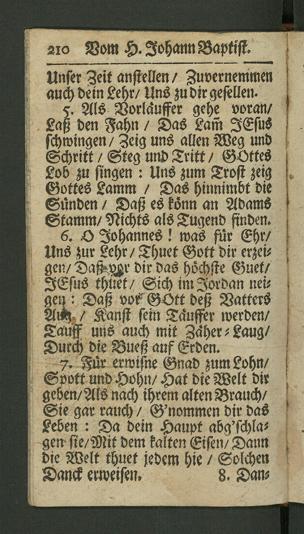 210 Vom H. Johann Baptist.
Unser Zeit anstellen / Zuvernemmen
auch dein Lehr / Uns zu dir gesellen.
5. Als Vorläuffer gehe voran /
Laß den Fahn / Das Lam̃ JEsus
schwingen / Zeig uns allen Weg und
Schritt / Steg und Tritt / GOttes
Lob zu singen : Uns zum Trost zeig
Gottes Lamm / Das hinnimbt die
Sünden / Daß es könn an Adams
Stamm / Nichts als Tugend finden.
6. O Johannes ! was für Ehr /
Uns zur Lehr / Thuet Gott dir erzei-
gen / Daß vor dir das höchste Guet /
JEsus thuet / Sich im Jordan nei-
gen : Daß vor GOtt deß Vatters
Aug / Kanst sein Täuffer werden /
Tauff uns auch mit Zäher-Laug /
Durch die Bueß auf Erden.
7. Für erwisne Gnad zum Lohn /
Spott und Hohn / Hat die Welt dir
geben / Als nach ihrem alten Brauch /
Sie gar rauch / G'nommen dir das
Leben : Da dein Haupt abg'schla-
gen sie / Mit dem kalten Eisen / Dann
die Welt thuet jedem hie / Solchen
Danck erweisen. 8. Dan-